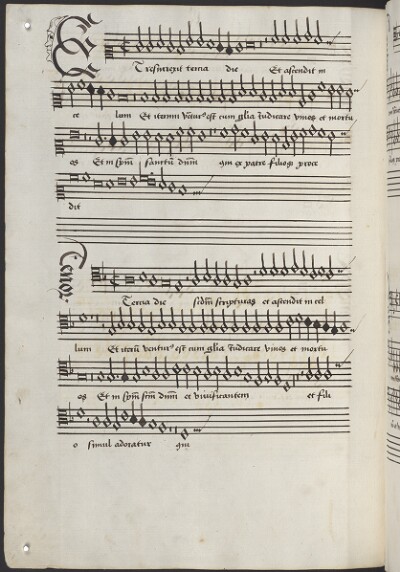 Et resurrexit tertia die Et ascendit in
ce lum Et iterum ventur9 est cum glia Iudicare vivos et mortu
os Et in spm sanctu dnm qui ex patre filioqz proce
dit
Tenor
Tertia die scdm scripturas et ascendit in cel
lum Et iteru ventur9 est cum glia Iudicare vivos et mortu
os Et in spm scm dnm et vivificantem et fili
o simul adoratur qui